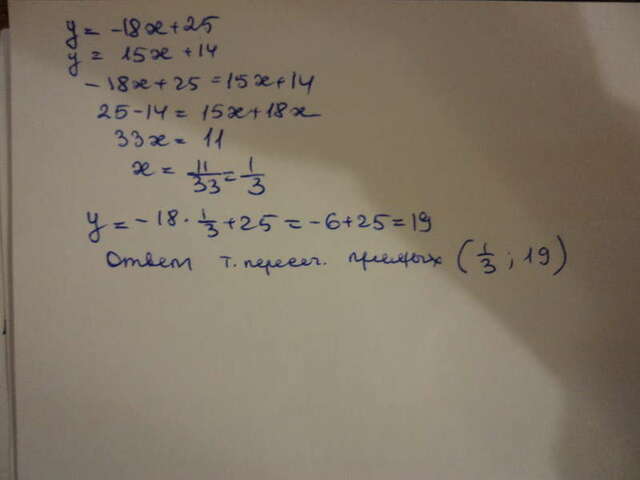 y = -18x+25
y = 15x+14
-18x+25=15x+14
25-14=15x+18x
33x=11
x = 11/33 = 1/3
y = -18·1/3+25=-6+25=19
Ответ т. пересеч. прямых (1/3; 19)